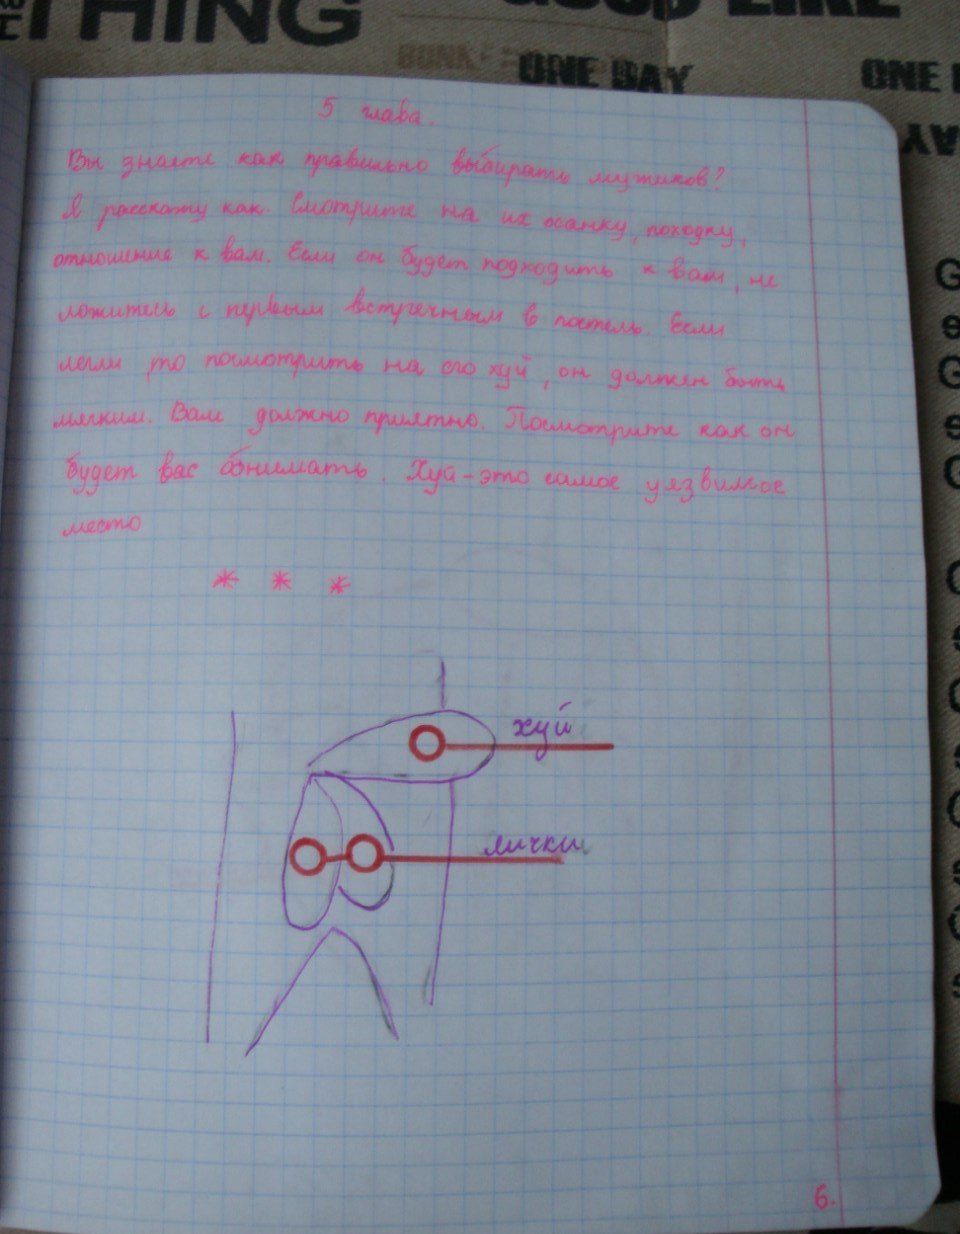 THING
GOOD LIKE
ONE DAY
ONE
5 глава.
Вы знаете как правильно выбирать мужиков?
Я расскажу как. Смотрите на их осанку, походку,
отношение к вам. Если он будет подходить к вам, не
ложитесь с первым встречным в постель. Если
легли, то посмотрить на его хуй, он должен быть
мягким. Вам должно приятно. Посмотрите как он
будет вас обнимать. Хуй - это самое уязвимое
место
* * *
хуй
яички
6.